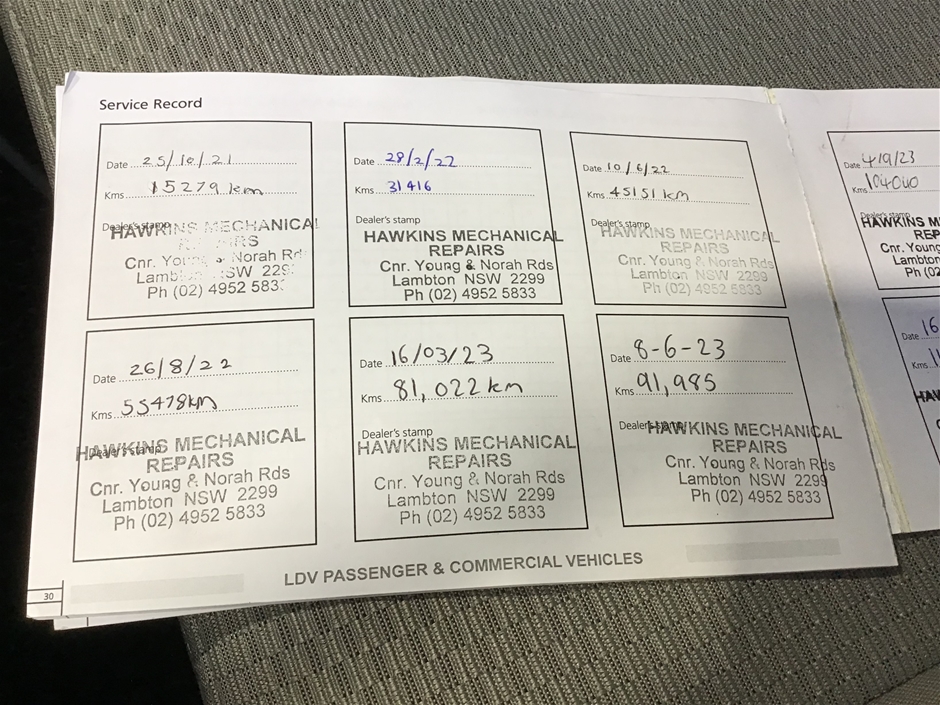 Service Record
Date 25/10/21
Kms 15279 km
Dealer's stamp
HAWKINS MECHANICAL
REPAIRS
Cnr. Young & Norah Rds
Lambton NSW 229
Ph (02) 4952 583
Date 28/2/22
Kms 31416
Dealer's stamp
HAWKINS MECHANICAL
REPAIRS
Cnr. Young & Norah Rds
Lambton NSW 2299
Ph (02) 4952 5833
Date 10/6/22
Kms 45151 km
Dealer's stamp
HAWKINS MECHANICAL
REPAIRS
Cnr. Young & Norah Rds
Lambton NSW 2299
Ph (02) 4952 5833
Date 26/8/22
Kms 55478km
Dealer's stamp
HAWKINS MECHANICAL
REPAIRS
Cnr. Young & Norah Rds
Lambton NSW 2299
Ph (02) 4952 5833
Date 16/03/23
Kms 81,022 km
Dealer's stamp
HAWKINS MECHANICAL
REPAIRS
Cnr. Young & Norah Rds
Lambton NSW 2299
Ph (02) 4952 5833
Date 8-6-23
Kms 91,985
Dealer's stamp
HAWKINS MECHANICAL
REPAIRS
Cnr. Young & Norah Rds
Lambton NSW 2299
Ph (02) 4952 5833
30
LDV PASSENGER & COMMERCIAL VEHICLES
Date 4/9/23
Kms 104040
Dealer's stamp
HAWKINS M
REP
Cnr. Young
Lambton
Ph (02
Date 16
Kms 1